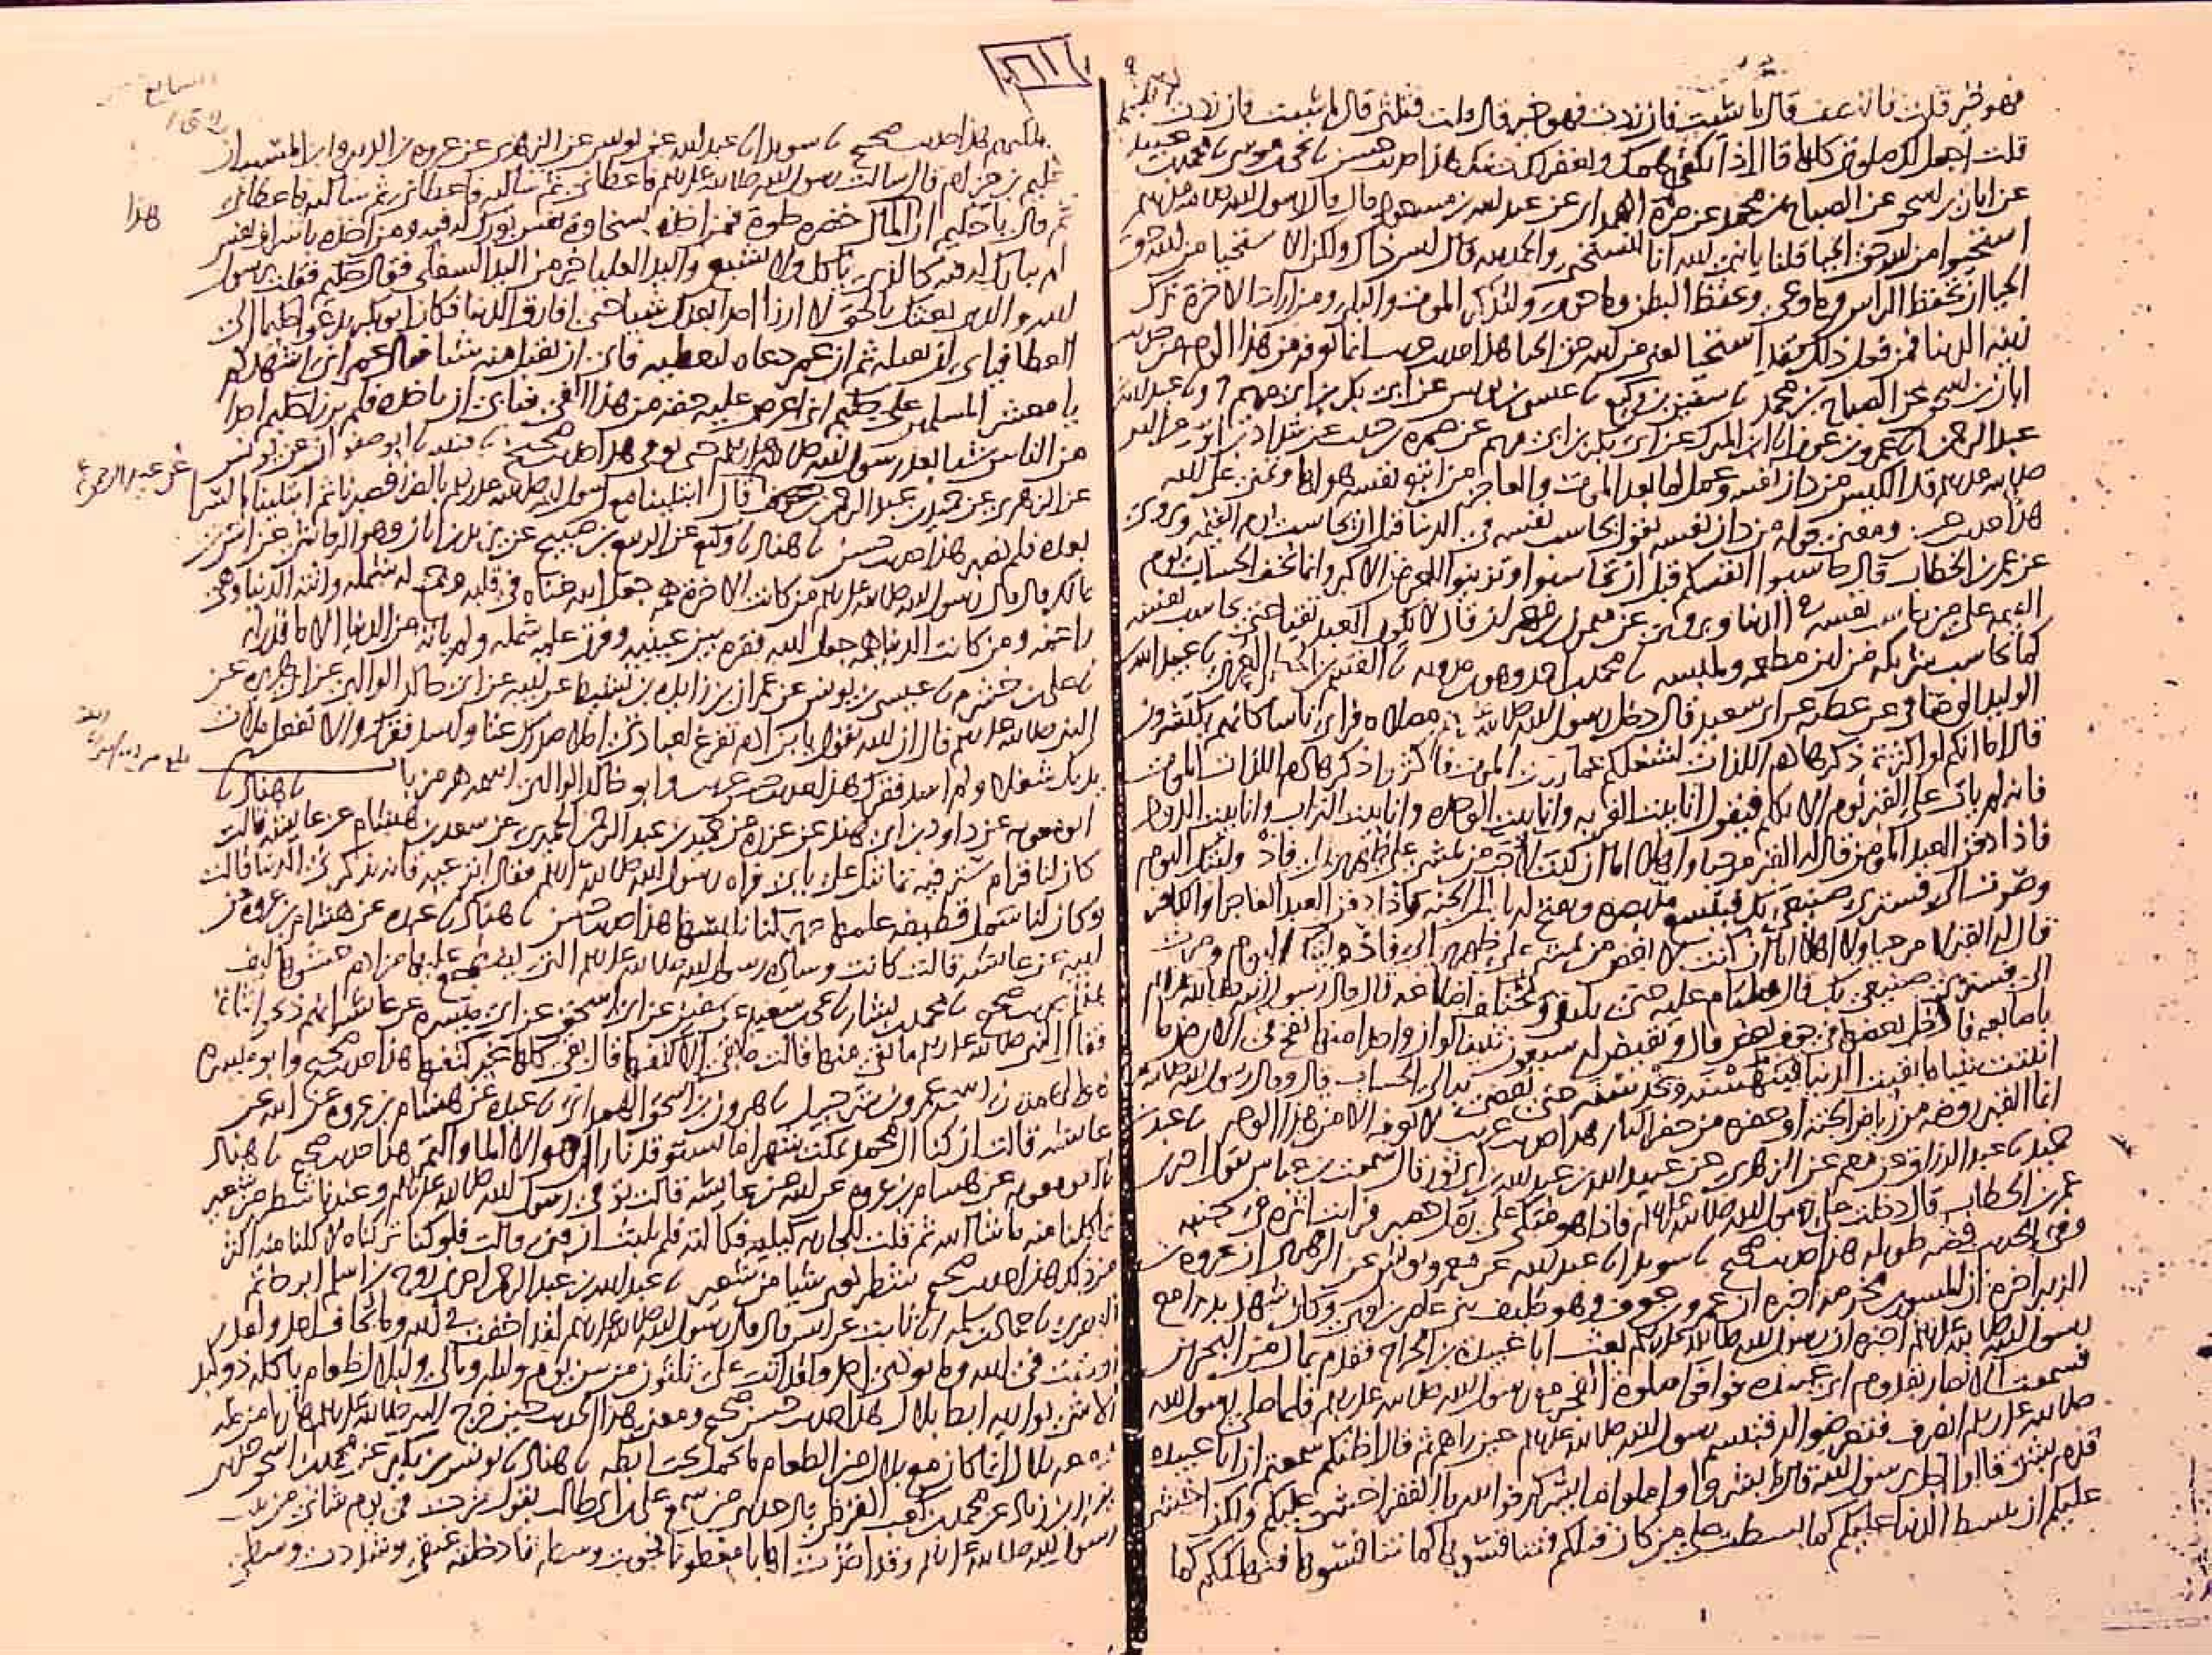 فهو خير قلت فالنصف قال ما شيت فان زدت فهو خير قال قلت فثلثي قال ما شيت فان زدت
قلت اجعل لك صلوتي كلها قال اذا تكفى همك ويغفر لك ذنبك هذا حديث حسن نا يحيى بن موسى نا محمد بن عبيد
عن ابان بن اسحق عن الصباح بن محمد عن مرة الهمداني عن عبد الله بن مسعود قال قال رسول الله صلى الله عليه وسلم
استحيوا من الله حق الحيا قلنا يا نبي الله انا لنستحيي والحمد لله قال ليس ذاك ولكن الاستحيا من الله حق
الحيا ان تحفظ الراس وما وعى وتحفظ البطن وما حوى ولتذكر الموت والبلى ومن اراد الاخرة ترك
زينة الدنيا فمن فعل ذلك فقد استحيا يعني من الله حق الحيا هذا حديث غريب انما نعرفه من هذا الوجه من حديث
ابان بن اسحق عن الصباح بن محمد نا سفين بن وكيع نا عيسى بن يونس عن ابي بكر بن ابي مريم ح ونا عبد الله بن
عبد الرحمن نا عمرو بن عون انا ابن المبارك عن ابي بكر بن ابي مريم عن ضمرة بن حبيب عن شداد بن اوس عن النبي
صلى الله عليه وسلم قال الكيس من دان نفسه وعمل لما بعد الموت والعاجز من اتبع نفسه هواها وتمنى على الله
هذا حديث حسن ومعنى قوله من دان نفسه يقول حاسب نفسه في الدنيا قبل ان يحاسب يوم القيمة ويروى
عن عمر بن الخطاب قال حاسبوا انفسكم قبل ان تحاسبوا وتزينوا للعرض الاكبر وانما يخف الحساب يوم
القيمة على من حاسب نفسه في الدنيا ويروى عن ميمون بن مهران قال لا يكون العبد تقيا حتى يحاسب نفسه
كما يحاسب شريكه من اين مطعمه وملبسه نا محمد بن احمد وهو بن مدويه نا القسم بن الحكم العرني نا عبيد الله
الوليد الوصافي عن عطية عن ابي سعيد قال دخل رسول الله صلى الله عليه وسلم مصلاه فراى ناسا كانهم يكتشرون
قال اما انكم لو اكثرتم ذكر هاذم اللذات لشغلكم عما ارى الموت فاكثروا ذكر هاذم اللذات الموت
فانه لم يات على القبر يوم الا تكلم فيقول انا بيت الغربة وانا بيت الوحدة وانا بيت التراب وانا بيت الدود
فاذا دفن العبد المومن قال له القبر مرحبا واهلا اما ان كنت لاحب من يمشي على ظهري الي فاذ وليتك اليوم
وصرت الي فسترى صنيعي بك فيتسع له مد بصره ويفتح له باب الى الجنة واذا دفن العبد الفاجر او الكافر
قال له القبر لا مرحبا ولا اهلا اما ان كنت لابغض من يمشي على ظهري الي فاذ وليتك اليوم وصرت
الي فسترى صنيعي بك قال فيلتام عليه حتى يلتقي وتختلف اضلاعه قال قال رسول الله صلى الله عليه وسلم
باصابعه فادخل بعضها في جوف بعض قال ويقيض له سبعون تنينا لو ان واحدا منها نفخ في الارض ما
انبتت شيا ما بقيت الدنيا فينهشنه ويخدشنه حتى يفضى به الى الحساب قال وقال رسول الله صلى الله
انما القبر روضة من رياض الجنة او حفرة من حفر النار هذا حديث غريب لا نعرفه الا من هذا الوجه نا عبد بن
حميد نا عبد الرزاق عن معمر عن الزهري عن عبيد الله بن عبد الله بن ابي ثور قال سمعت بن عباس يقول اخبرني
عمر بن الخطاب قال دخلت على رسول الله صلى الله عليه وسلم فاذا هو متكي على رمل حصير فرايت اثره في جنبه
وفي الحديث قصة طويلة هذا حديث صحيح نا سويد انا عبد الله عن معمر ويونس عن الزهري ان عروة بن
الزبير اخبره ان المسور بن مخرمة اخبره ان عمرو بن عوف وهو حليف بني عامر بن لوي وكان شهد بدرا مع
رسول الله صلى الله عليه وسلم اخبره ان رسول الله صلى الله عليه وسلم بعث ابا عبيدة بن الجراح فقدم بمال من البحرين
فسمعت الانصار بقدوم ابي عبيدة فوافوا صلوة الفجر مع رسول الله صلى الله عليه وسلم فلما صلى رسول الله
صلى الله عليه وسلم انصرف فتعرضوا له فتبسم رسول الله صلى الله عليه وسلم حين راهم ثم قال اظنكم سمعتم ان ابا عبيدة
قدم بشي قالوا اجل يرسول الله قال فابشروا واملوا ما يسركم فوالله ما الفقر اخشى عليكم ولكن اخشى
عليكم ان تبسط الدنيا عليكم كما بسطت على من كان قبلكم فتنافسوها كما تنافسوها فتهلككم كما
اهلكتهم هذا حديث صحيح نا سويد انا عبد الله عن يونس عن الزهري عن عروة بن الزبير وابن المسيب ان
حكيم بن حزام قال سالت رسول الله صلى الله عليه وسلم فاعطاني ثم سالته فاعطاني ثم سالته فاعطاني
ثم قال يا حكيم ان هذا المال خضرة حلوة فمن اخذه بسخاوة نفس بورك له فيه ومن اخذه باشراف نفس
لم يبارك له فيه كالذي ياكل ولا يشبع واليد العليا خير من اليد السفلى فقال حكيم فقلت يرسول
الله والذي بعثك بالحق لا ارزا احدا بعدك شيا حتى افارق الدنيا فكان ابو بكر يدعو حكيما الى
العطا فيابى ان يقبله ثم ان عمر دعاه ليعطيه فابى ان يقبل منه شيا فقال عمر اني اشهدكم
يا معشر المسلمين على حكيم اني اعرض عليه حقه من هذا الفي فيابى ان ياخذه فلم يرزا حكيم احدا
من الناس شيا بعد رسول الله صلى الله عليه وسلم حتى توفي هذا حديث صحيح نا قتيبة نا ابو صفوان عن يونس
عن الزهري عن حميد بن عبد الرحمن عن عبد الرحمن قال ابتلينا مع رسول الله صلى الله عليه وسلم بالضرا فصبرنا ثم ابتلينا بالسرا
بعده فلم نصبر هذا حديث حسن نا هناد نا وكيع عن الربيع بن صبيح عن يزيد بن ابان وهو الرقاشي عن انس بن
مالك قال قال رسول الله صلى الله عليه وسلم من كانت الاخرة همه جعل الله غناه في قلبه وجمع له شمله واتته الدنيا وهي
راغمة ومن كانت الدنيا همه جعل الله فقره بين عينيه وفرق عليه شمله ولم ياته من الدنيا الا ما قدر له
نا علي بن خشرم نا عيسى بن يونس عن عمران بن زايدة بن نشيط عن ابيه عن ابي خالد الوالبي عن ابي هريرة عن
النبي صلى الله عليه وسلم قال ان الله يقول يا بن ادم تفرغ لعبادتي املا صدرك غنا واسد فقرك والا تفعل ملات
يديك شغلا ولم اسد فقرك هذا حديث حسن غريب وابو خالد الوالبي اسمه هرمز نا هناد نا
ابو معوية عن داود بن ابي هند عن عزرة عن حميد بن عبد الرحمن الحميري عن سعد بن هشام عن عايشة قالت
كان لنا قرام ستر فيه تماثيل على بابي فراه رسول الله صلى الله عليه وسلم فقال انزعيه فانه يذكرني الدنيا قالت
وكان لنا سمل قطيفة علمها حرير كنا نلبسها هذا حديث حسن نا هناد نا عبدة عن هشام بن عروة عن
ابيه عن عايشة قالت كانت وسادة رسول الله صلى الله عليه وسلم التي يضطجع عليها من ادم حشوها ليف
هذا حديث صحيح نا محمد بن بشار نا يحيى بن سعيد عن سفين عن ابي اسحق عن ابي ميسرة عن عايشة انهم ذبحوا شاة
فقال النبي صلى الله عليه وسلم ما بقي منها قالت ما بقي الا كتفها قال بقي كلها غير كتفها هذا حديث صحيح وابو ميسرة
هو الهمداني اسمه عمرو بن شرحبيل نا هرون بن اسحق الهمداني نا عبدة عن هشام بن عروة عن ابيه عن
عايشة قالت ان كنا ال محمد نمكث شهرا ما نستوقد نارا ان هو الا الما والتمر هذا حديث صحيح نا هناد
نا ابو معوية عن هشام بن عروة عن ابيه عن عايشة قالت توفي رسول الله صلى الله عليه وسلم وعندنا شطر من شعير
فاكلنا منه ما شا الله ثم قلت للجارية كيليه فكالته فلم يلبث ان فني قالت فلو كنا تركناه لاكلنا منه اكثر
من ذلك هذا حديث صحيح شطر تعني شيا من شعير نا عبد الله بن عبد الرحمن نا روح بن اسلم ابو حاتم
البصري نا حماد بن سلمة نا ثابت عن انس قال قال رسول الله صلى الله عليه وسلم لقد اخفت في الله وما يخاف احد ولقد
اوذيت في الله وما يوذى احد ولقد اتت علي ثلثون من بين يوم وليلة ومالي ولبلال طعام ياكله ذو كبد
الا شي يواريه ابط بلال هذا حديث حسن صحيح ومعنى هذا الحديث حين خرج النبي صلى الله عليه وسلم هاربا من مكة
ومعه بلال انما كان مع بلال من الطعام ما يحمل تحت ابطه نا هناد نا يونس بن بكير عن محمد بن اسحق
يزيد بن زياد عن محمد بن كعب القرظي قال حدثني من سمع علي بن ابي طالب يقول خرجت في يوم شاتي من بيت
رسول الله صلى الله عليه وسلم وقد اخذت اهابا معطونا فجوبت وسطه فادخلته عنقي وشددت وسطي